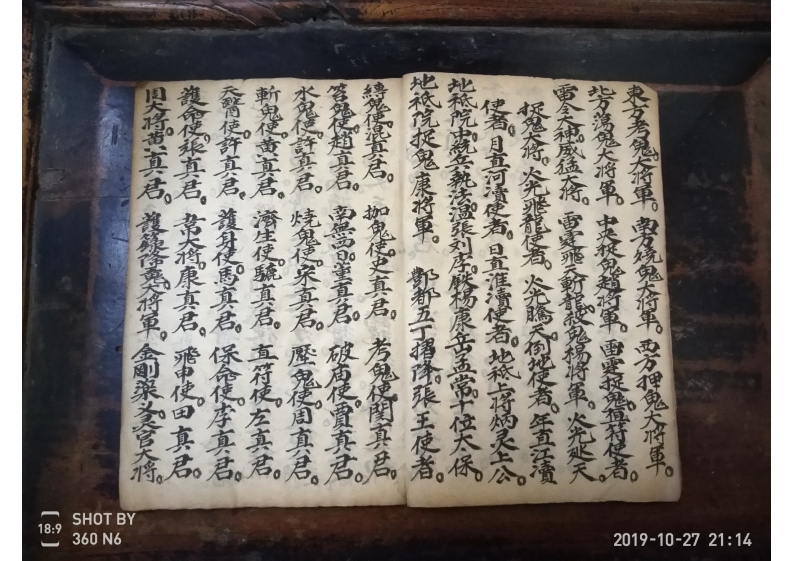 東方考鬼大將軍。南方燒鬼大將軍。西方押鬼大將軍。
北方蕩鬼大將軍。中央捉鬼趙將軍。雷霆捉鬼植符使者。
雷令大神威猛大將。雷霆飛天斬龍殺鬼楊將軍。火光飛天
捉鬼大將。火光飛龍使者。火光騰天倒地使者。年直江瀆
使者。月直河瀆使者。日直淮瀆使者。地祇上將炳灵上公
地祇院中統兵執法溫張刘李鉄楊康岳孟常十位大保
地祇院捉鬼康將軍。酆都五丁摺降張王使者。
縛鬼使混真君。枷鬼使史真君。考鬼使関真君。
笞鬼使趙真君。南無西日董真君。破庙使賈真君。
水鬼使許真君。燒鬼使宋真君。壓鬼使周真君。
斬鬼使黄真君。濟生使驍真君。直符使左真君。
天醫使許真君。護身使馬真君。保命使李真君。
護命使張真君。大將康真君。飛申使田真君。
周大將黄真君。護大將軍金剛大將。
18:9 SHOT BY
360 N6
2019-10-27 21:14